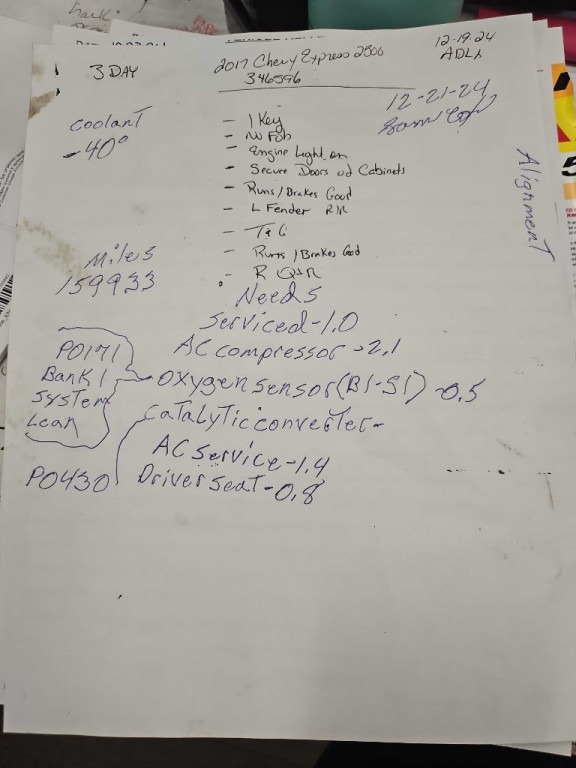 3 DAY
2017 Chevy Express 2500
346596
12-19-24
ADLX
12-21-24
Coolant
-40°
- 1 Key
- No Fob
- Engine Light on
- Secure Doors w/ Cabinets
- Runs/Brakes Good
- L Fender R/R
- T&G
- Runs/Brakes Good
- R
Alignment
Miles
159933
Needs
Serviced-1.0
AC compressor-2.1
Oxygen sensor(B1-S1)-0.5
Catalytic converter-
AC Service-1.4
Driver seat-0.8
P0171
Bank 1
System
Lean
P0430